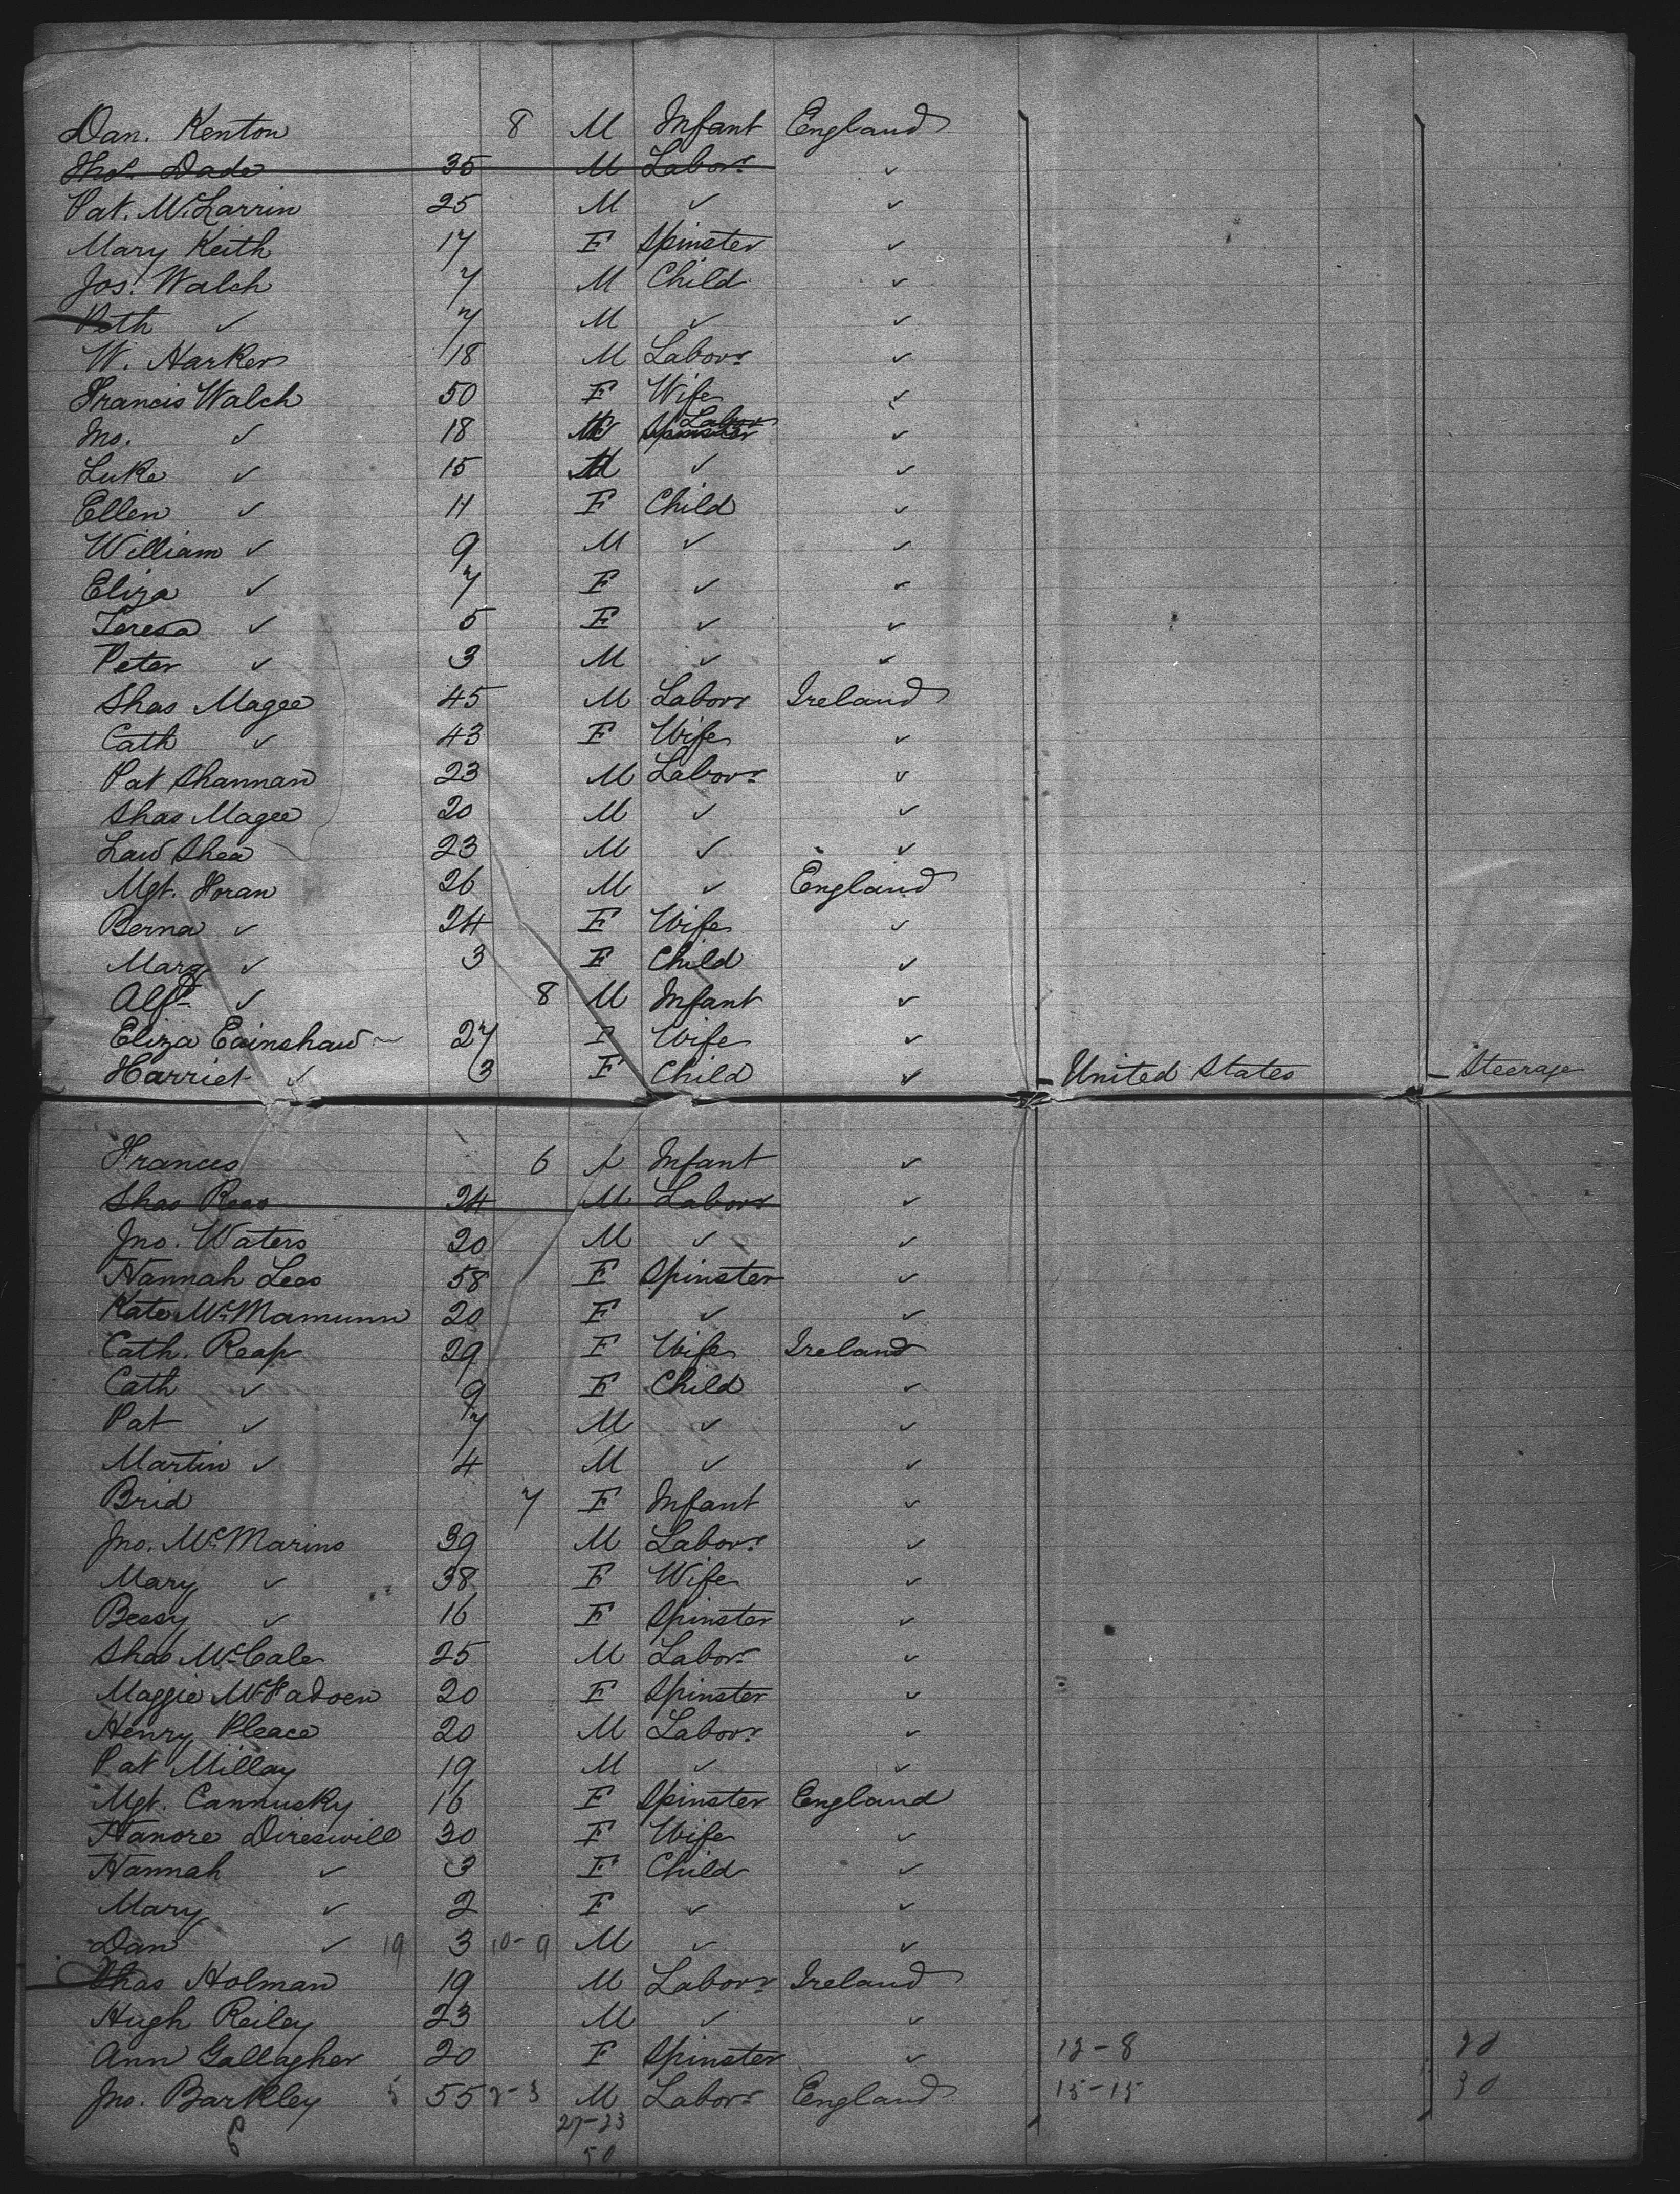 Dan. Kenton 8 M Infant England
Thos. Dade 35 M Labor. ✓
Pat. McLarrin 25 M ✓ ✓
Mary Keith 17 F Spinster ✓
Jos. Walch 7 M Child ✓
Path ✓ 7 M ✓ ✓
W. Harker 18 M Labor. ✓
Francis Walch 50 F Wife ✓
Jno. ✓ 18 M Spinster Labor ✓
Luke ✓ 15 M ✓ ✓
Ellen ✓ 11 F Child ✓
William ✓ 9 M ✓ ✓
Eliza ✓ 7 F ✓ ✓
Teresa ✓ 5 F ✓ ✓
Peter ✓ 3 M ✓ ✓
Thos Magee 45 M Labor Ireland
Cath ✓ 43 F Wife ✓
Pat Shannan 23 M Labor. ✓
Thos Magee 20 M ✓ ✓
Law Shea 23 M ✓ ✓
Mgt. Horan 26 M ✓ England
Berna ✓ 24 F Wife ✓
Marg ✓ 3 F Child ✓
Alfd ✓ 8 M Infant ✓
Eliza Eainshaw 27 F Wife ✓
Harriet ✓ 3 F Child ✓ United States Steerage
Frances 6 Infant ✓
Thos Rees 24 M Labor ✓
Jno. Waters 20 M ✓ ✓
Hannah Lees 58 F Spinster ✓
Kate McMamunn 20 F ✓ ✓
Cath. Reap 29 F Wife Ireland
Cath ✓ 9 F Child ✓
Pat ✓ 7 M ✓ ✓
Martin ✓ 4 M ✓ ✓
Brid 7 F Infant ✓
Jno. McMarins 39 M Labor. ✓
Mary ✓ 38 F Wife ✓
Bessy ✓ 16 F Spinster ✓
Thos McCale 25 M Labor. ✓
Maggie McFadden 20 F Spinster ✓
Henry Pleace 20 M Labor. ✓
Pat Millay 19 M ✓ ✓
Mgt. Cannusky 16 F Spinster England
Hanore Direswill 30 F Wife ✓
Hannah ✓ 3 F Child ✓
Mary ✓ 2 F ✓ ✓
Dan ✓ 19 3 10-9 M ✓ ✓
Thos Holman 19 M Labor. Ireland
Hugh Reiley 23 M ✓ ✓
Ann Gallagher 20 F Spinster ✓ 12-8 20
Jno. Barkley 5 55 2-3 M Labor. England 15-15 30
27-23
50